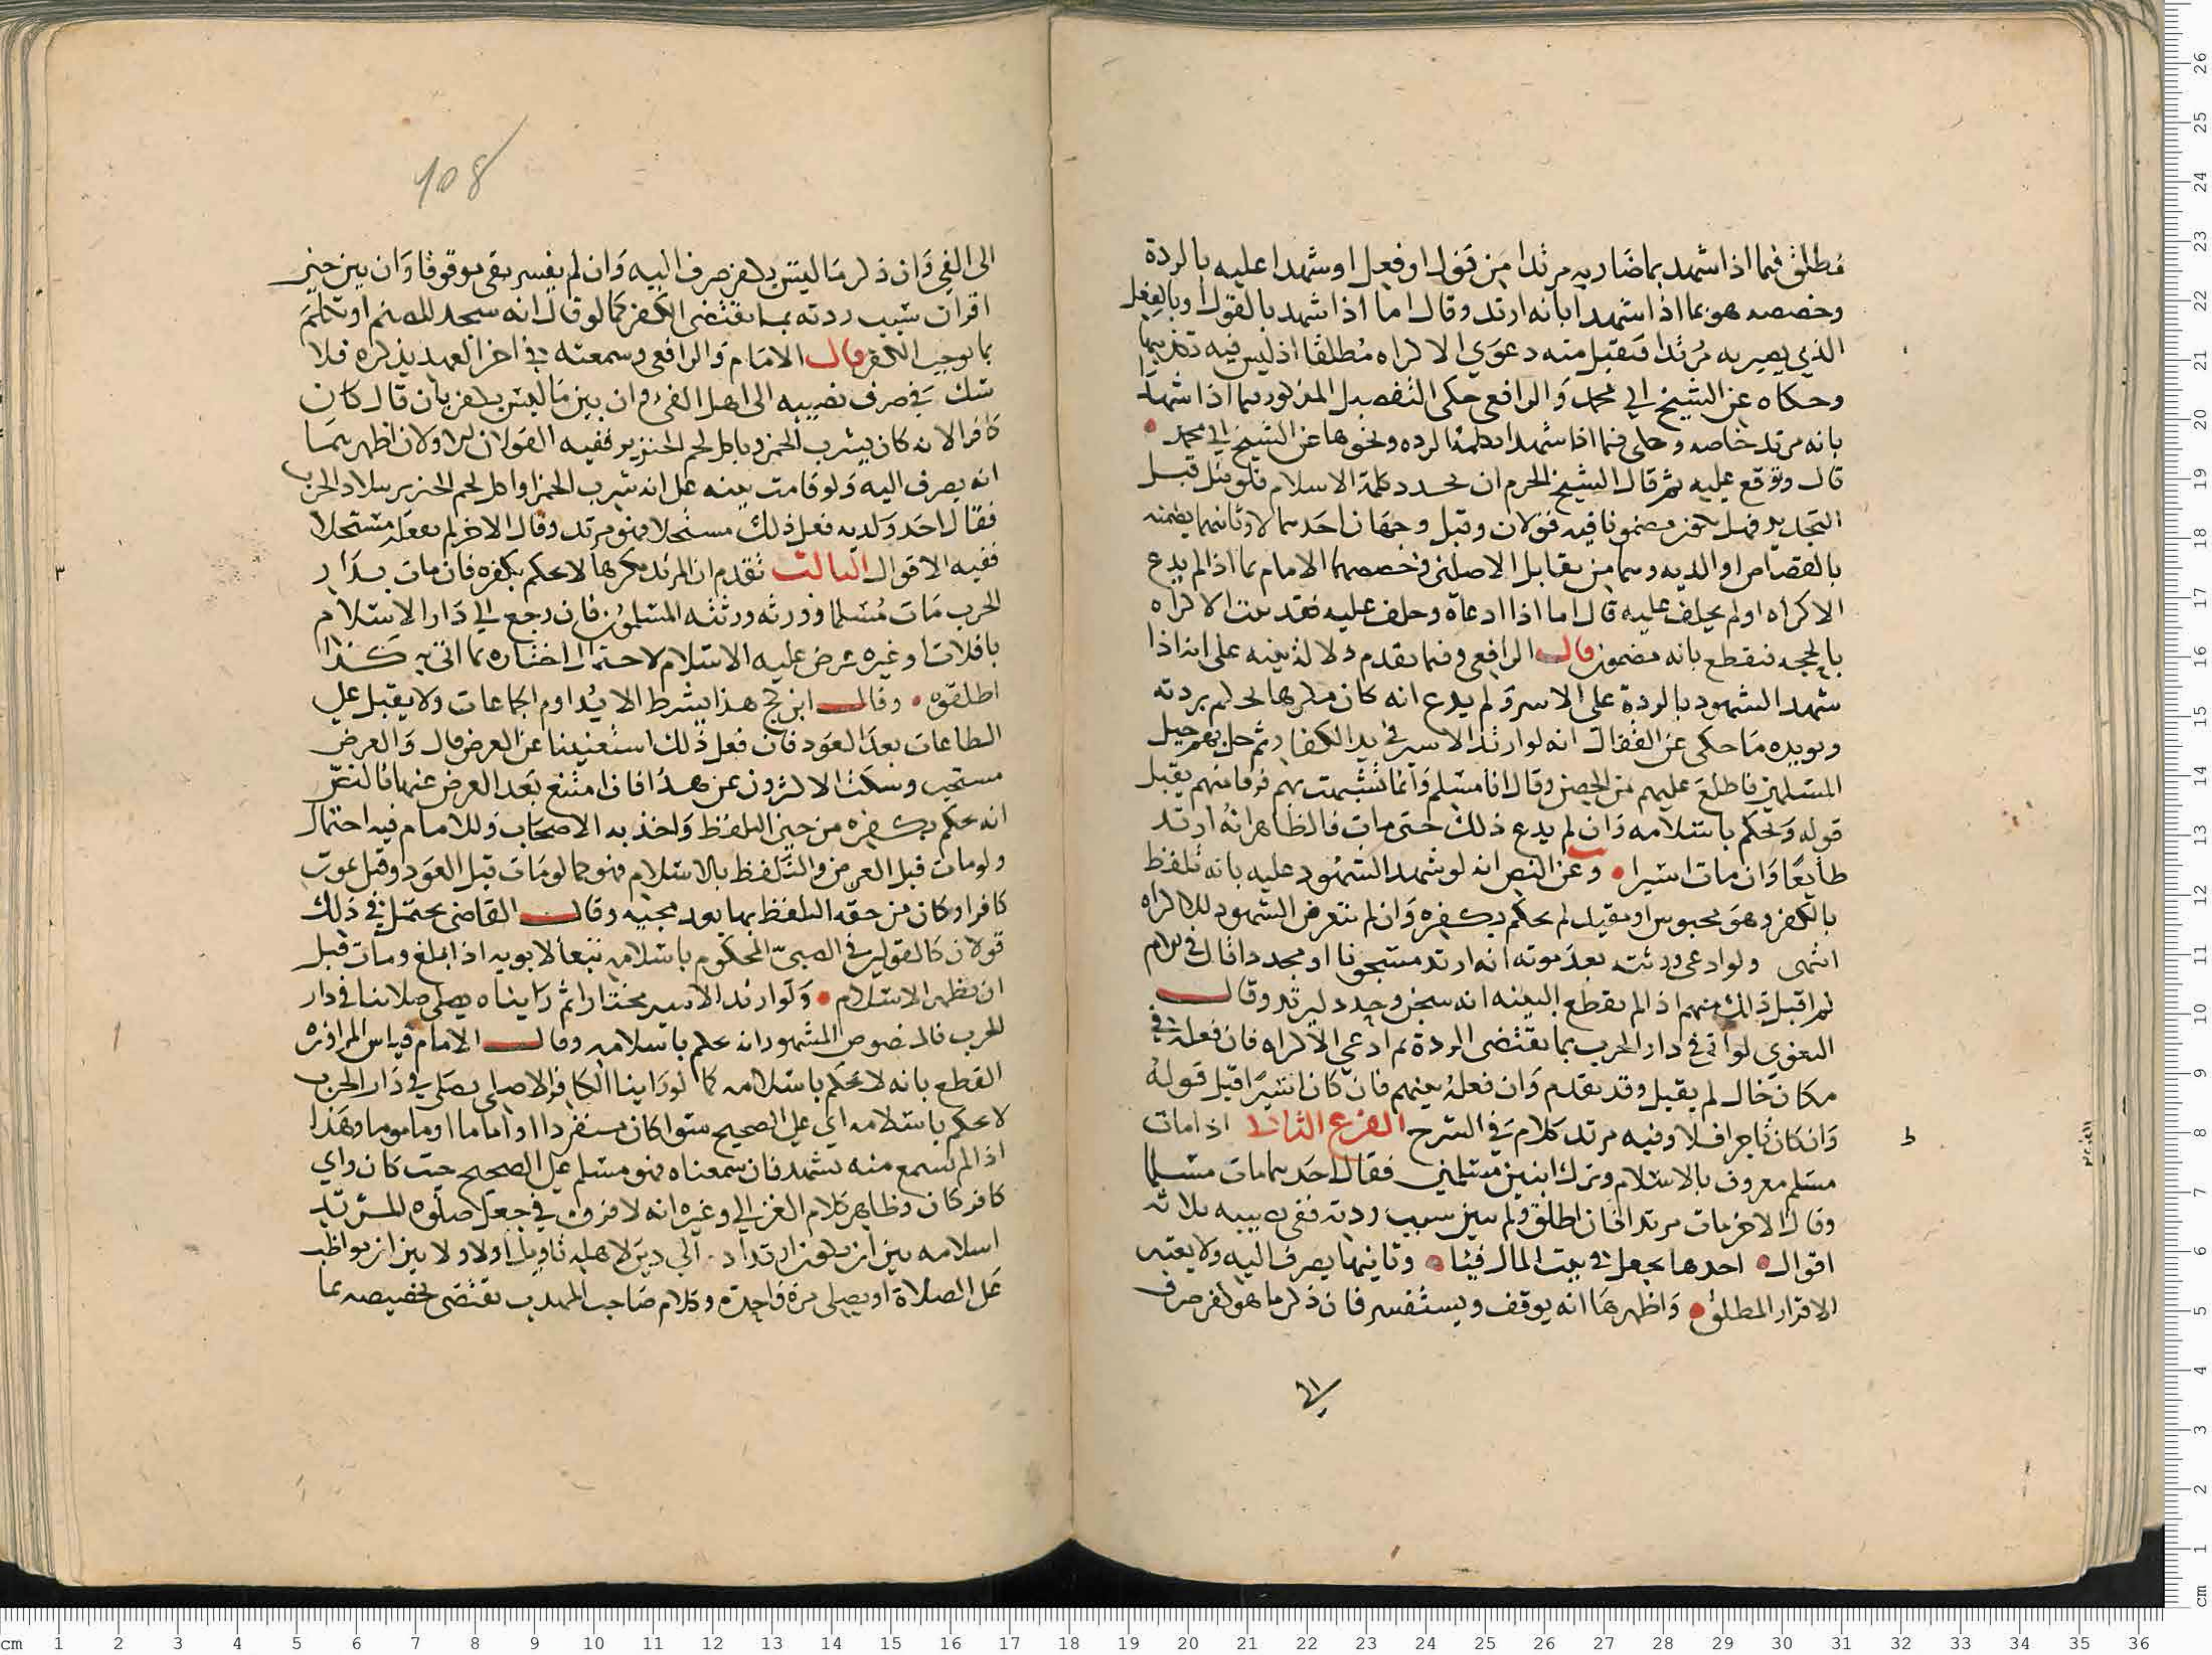 مطلق فيما اذا شهد بما صار به مرتدا من قول او فعل او شهدا عليه بالردة
وخصصه هو بما اذا شهدا بانه ارتد وقال اما اذا شهد بالقول او بالفعل
الذي يصير به مرتدا فتقبل منه دعوي الاكراه مطلقا اذ ليس فيه تكذيبهما
وحكاه عن الشيخ ابي محمد والرافعي حكى التفصيل المذكور فيما اذا شهدا
بانه مرتد خاصه وحكى فيما اذا شهدا بكلمة الرده ونحوها عن الشيخ ابي محمد
قال ووقع عليه ثم قال الشيخ الحزم ان يجدد كلمة الاسلام فلو قتل قبل
التجديد فهل يكون مضمونا فيه قولان وقيل وجهان احدهما لا وثانيهما يضمنه
بالقصاص او الديه وهما من تقابل الاصلين وخصصهما الامام بما اذا لم يدع
الاكراه او لم يحلف عليه قال اما اذا ادعاه وحلف عليه فقد ثبت الاكراه
بالحجه فنقطع بانه مضمون قال الرافعي وفيما تقدم دلالة بينه على انه اذا
شهد الشهود بالردة على الاسر ولم يدع انه كان مكرها يحكم بردته
ويويده ما حكي عن القفال انه لو ارتد الاسير في يد الكفار ثم حل بهم خيل
المسلمين فاطلع عليهم من الحصن وقال انا مسلم وانما تشبهت بهم فرقا منهم يقبل
قوله ونحكم باسلامه وان لم يدع ذلك حتى مات فالظاهر انه ارتد
طايعا وان مات اسيرا وعن النص انه لو شهد الشهود عليه بانه تلفظ
بالكفر وهو محبوس او مقيد لم يحكم بكفره وان لم يتعرض الشهود للاكراه
انتهى ولو ادعي ورثته بعد موته انه ارتد مسجونا او محددا قال في الام
قبل ذلك منهم اذا لم تقطع البينه انه سجن وحدد ليرتد وقال
البغوي لو اتى في دار الحرب بما يقتضى الردة ثم ادعي الاكراه فان فعله في
مكان خال لم يقبل وقد تقدم وان فعله بينهم فان كان اسيرا قبل قوله
وان كان تاجرا فلا وفيه مرتد كلام في الشرح الفرع الثاني اذا مات
مسلم معروف بالاسلام وترك ابنين مسلمين فقال احدهما مات مسلما
وقال الاخر مات مرتدا فان اطلق ولم يبين سبب ردته ففى نصيبه ثلاثه
اقوال احدها يجعل في بيت المال فيئا وثانيها يصرف اليه ولا يعتبر
الاقرار المطلق واظهرها انه يوقف ويستفسر فان ذكر ما هو كفر صرف
الى
108
الى الفي وان ذكر ما ليس بكفر صرف اليه وان لم يفسر بقي موقوفا وان بين حين
اقراره سبب ردته بما يقتضى الكفر كما لو قال انه سجد للصنم او تكلم
بما يوجب الكفر قال الامام والرافعي وسمعته في اخر العهد يذكره فلا
شك في صرف نصيبه الى اهل الفيء وان بين ما ليس بكفر بان قال كان
كافرا لانه كان يشرب الخمر وياكل لحم الخنزير ففيه القولان الاولان اظهرهما
انه يصرف اليه ولو قامت بينه على انه شرب الخمر او اكل لحم الخنزير ببلاد الحرب
فقال احد ولديه فعل ذلك مستحلا فهو مرتد وقال الاخر لم يفعله مستحلا
ففيه الاقوال الثالث تقدم ان المرتد مكرها لا يحكم بكفره فان مات بدار
الحرب مات مسلما وورثه ورثته المسلمون فان رجع الي دار الاسلام
بافلات او غيره عرض عليه الاسلام لاحتمال اختياره بما اتى به كذا
اطلقوه وقال ابن كج هذا بشرط الا يداوم الجماعات ولا يقبل علي
الطاعات بعد العود فان فعل ذلك استغنينا عن العرض قال والعرض
مستحب وسكت الاكثرون عن هذا فان امتنع بعد العرض عنهما فالنص
انه يحكم بكفره من حين التلفظ واخذ به الاصحاب وللامام فيه احتمال
ولو مات قبل العرض والتلفظ بالاسلام فهو كما لو مات قبل العود وقيل يموت
كافرا وكان من حقه التلفظ بها بعد مجيئه وقال القاضى يحتمل في ذلك
قولان كالقولين في الصبي المحكوم باسلامه تبعا لابويه اذا بلغ ومات قبل
ان يظهر الاسلام ولو ارتد الاسير مختارا ثم رايناه يصلي صلاتنا في دار
الحرب فالمنصوص المشهور انه يحكم باسلامه وقال الامام قياس المراوزة
القطع بانه لا يحكم باسلامه كما لو راينا الكافر الاصلي يصلي في دار الحرب
لا يحكم باسلامه اي علي الصحيح سوا كان منفردا او اماما او ماموما وهذا
اذا لم يسمع منه تشهد فان سمعناه فهو مسلم على الصحيح حيث كان واي
كافر كان وظاهر كلام الغزالي وغيره انه لا فرق في جعل صلوه المرتد
اسلامه بين ان يكون ارتداده الي دين لاهله تاويل اولا ولا بين ان يواظب
على الصلاة او يصلى مرة واحدة وكلام صاحب المهذب يقتضى تخصيصه بما